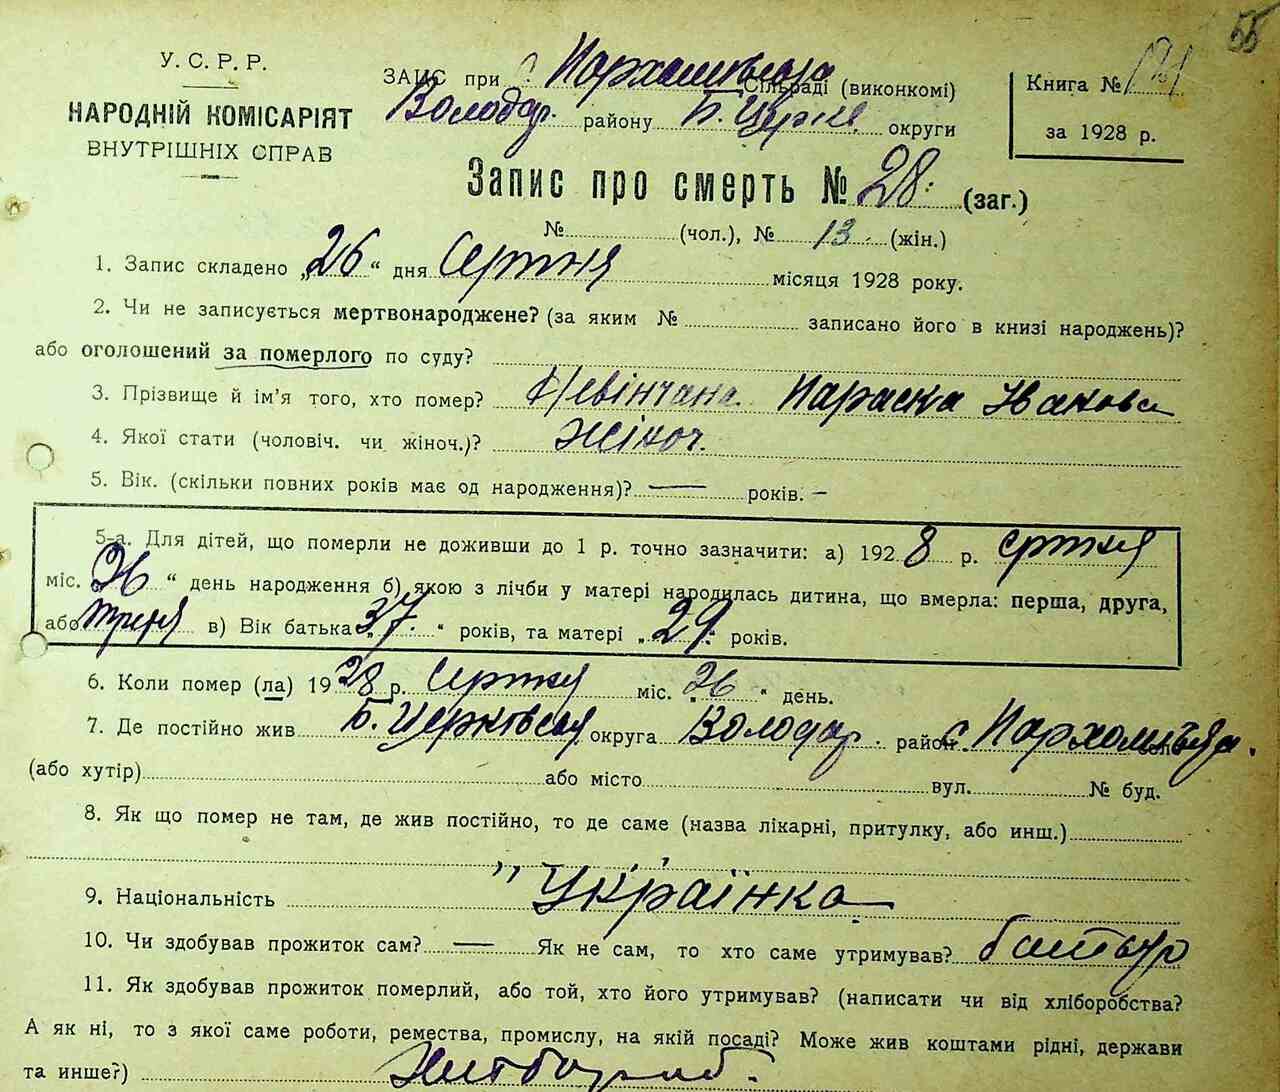 55
У. С. Р. Р.
НАРОДНІЙ КОМІСАРІЯТ
ВНУТРІШНІХ СПРАВ
ЗАПИС при с. Пархомівська Сільраді (виконкомі)
Володар. району Б. Церк. округи
Книга №
за 1928 р.
Запис про смерть № 28. (заг.)
№ (чол.), № 13 (жін.)
1. Запис складено „26“ дня Серпня місяця 1928 року.
2. Чи не записується мертвонароджене? (за яким № записано його в книзі народжень)?
або оголошений за померлого по суду?
3. Прізвище й ім'я того, хто помер? Невінчана Параска Іванова
4. Якої стати (чоловіч. чи жіноч.)? жіноч.
5. Вік. (скільки повних років має од народження)? — років. –
5-а. Для дітей, що померли не доживши до 1 р. точно зазначити: а) 1928 р. серпня
міс. 26 “ день народження б) якою з лічби у матері народилась дитина, що вмерла: перша, друга,
або третя в) Вік батька „37.“ років, та матері „29. років.
6. Коли помер (ла) 1928 р. Серпня міс. „26“ день.
7. Де постійно жив Б. Церковська округа Володар. район с. Пархомівка.
(або хутір) або місто вул. № буд.
8. Як що помер не там, де жив постійно, то де саме (назва лікарні, притулку, або инш.)
9. Національність Українка
10. Чи здобував прожиток сам? — Як не сам, то хто саме утримував? батько
11. Як здобував прожиток померлий, або той, хто його утримував? (написати чи від хліборобства?
А як ні, то з якої саме роботи, ремества, промислу, на якій посаді? Може жив коштами рідні, держави
та инше?) Хлібороб.